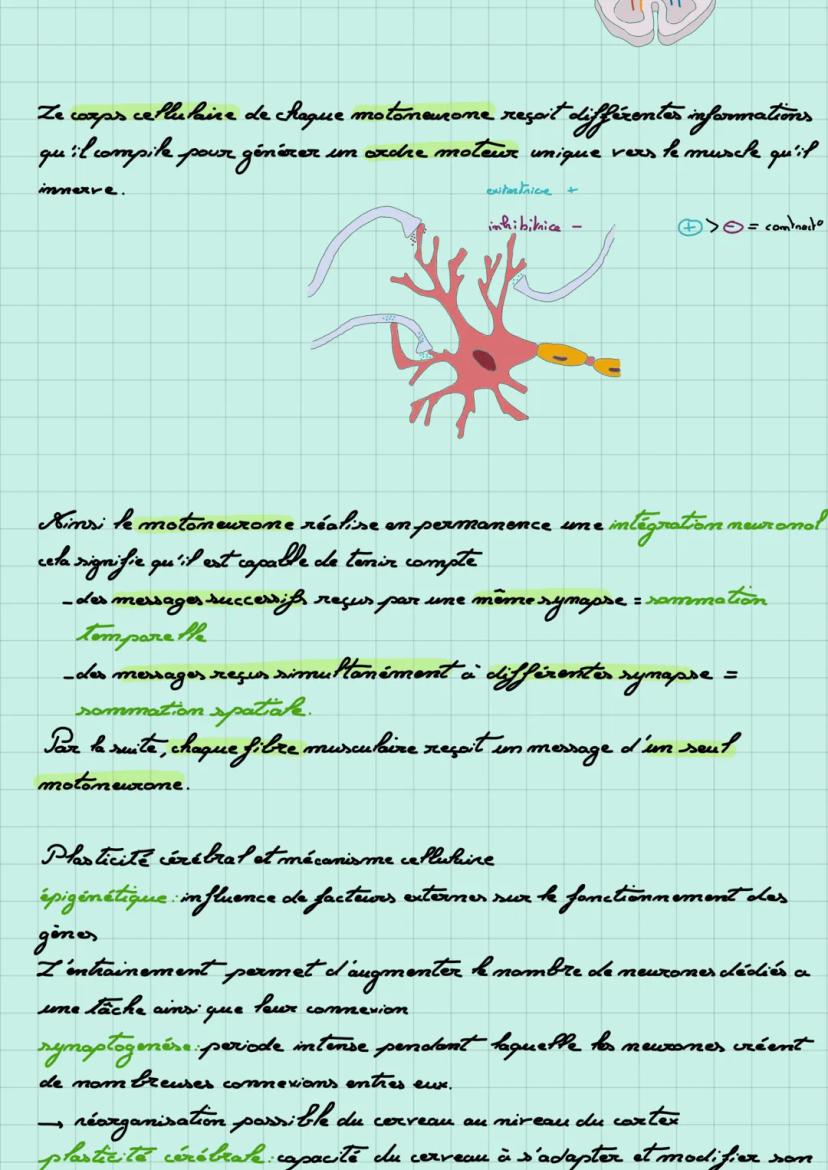 Le corps cellulaire de chaque motoneurone reçoit différentes informations
qu'il compile pour générer un ordre moteur unique vers le muscle qu'il
innerve.
exitatrice +
inhibitrice -
+ > - = contract°
Ainsi le motoneurone réalise en permanence une intégration neuronal
cela signifie qu'il est capable de tenir compte
-des messages successifs reçus par une même synapse = sommation
temporelle
-des messages reçus simultanément à différentes synapse =
sommation spatiale.
Par la suite, chaque fibre musculaire reçoit un message d'un seul
motoneurone.
Plasticité cérébral et mécanisme cellulaire
épigénétique: influence de facteurs externes sur le fonctionnement des
gènes
L'entrainement permet d'augmenter le nombre de neurones dédiés a
une tâche ainsi que leur connexion
synaptogenése: periode intense pendant laquelle les neurones créent
de nombreuses connexions entres eux.
→ réorganisation possible du cerveau au niveau du cortex
plasticité cérébrale: capacité du cerveau à s'adapter et modifier son